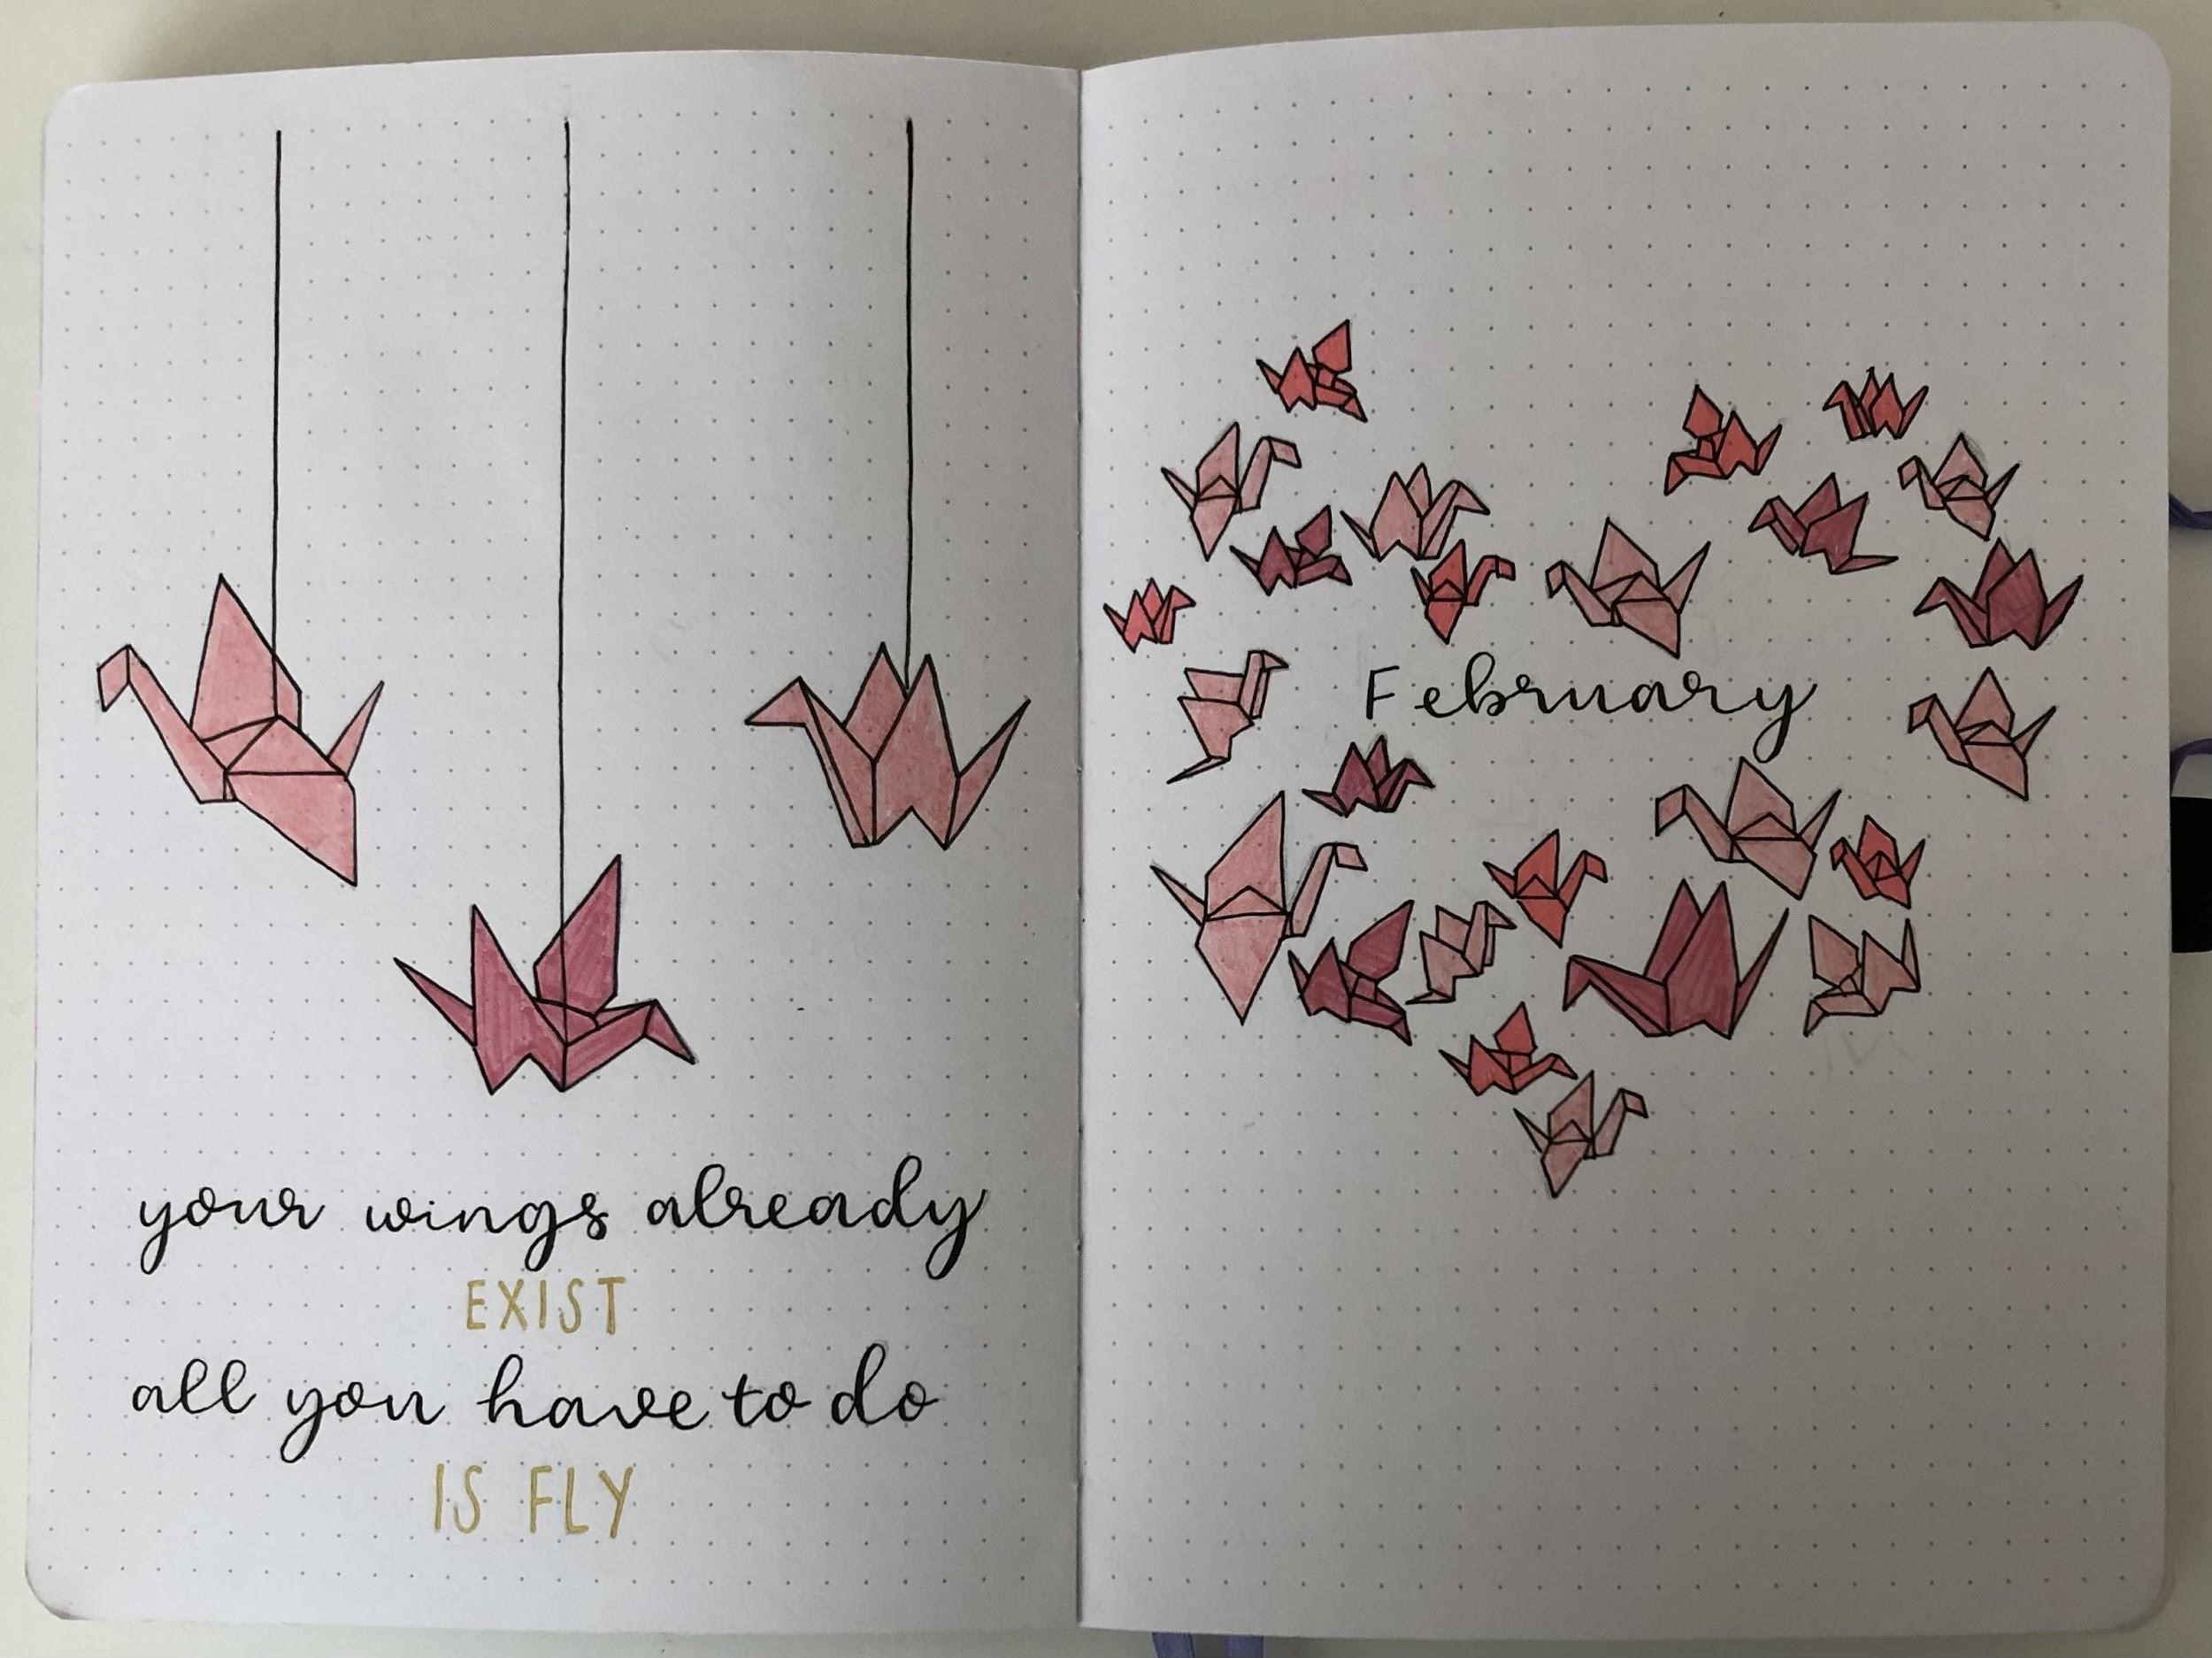 your wings already
EXIST
all you have to do
IS FLY
February